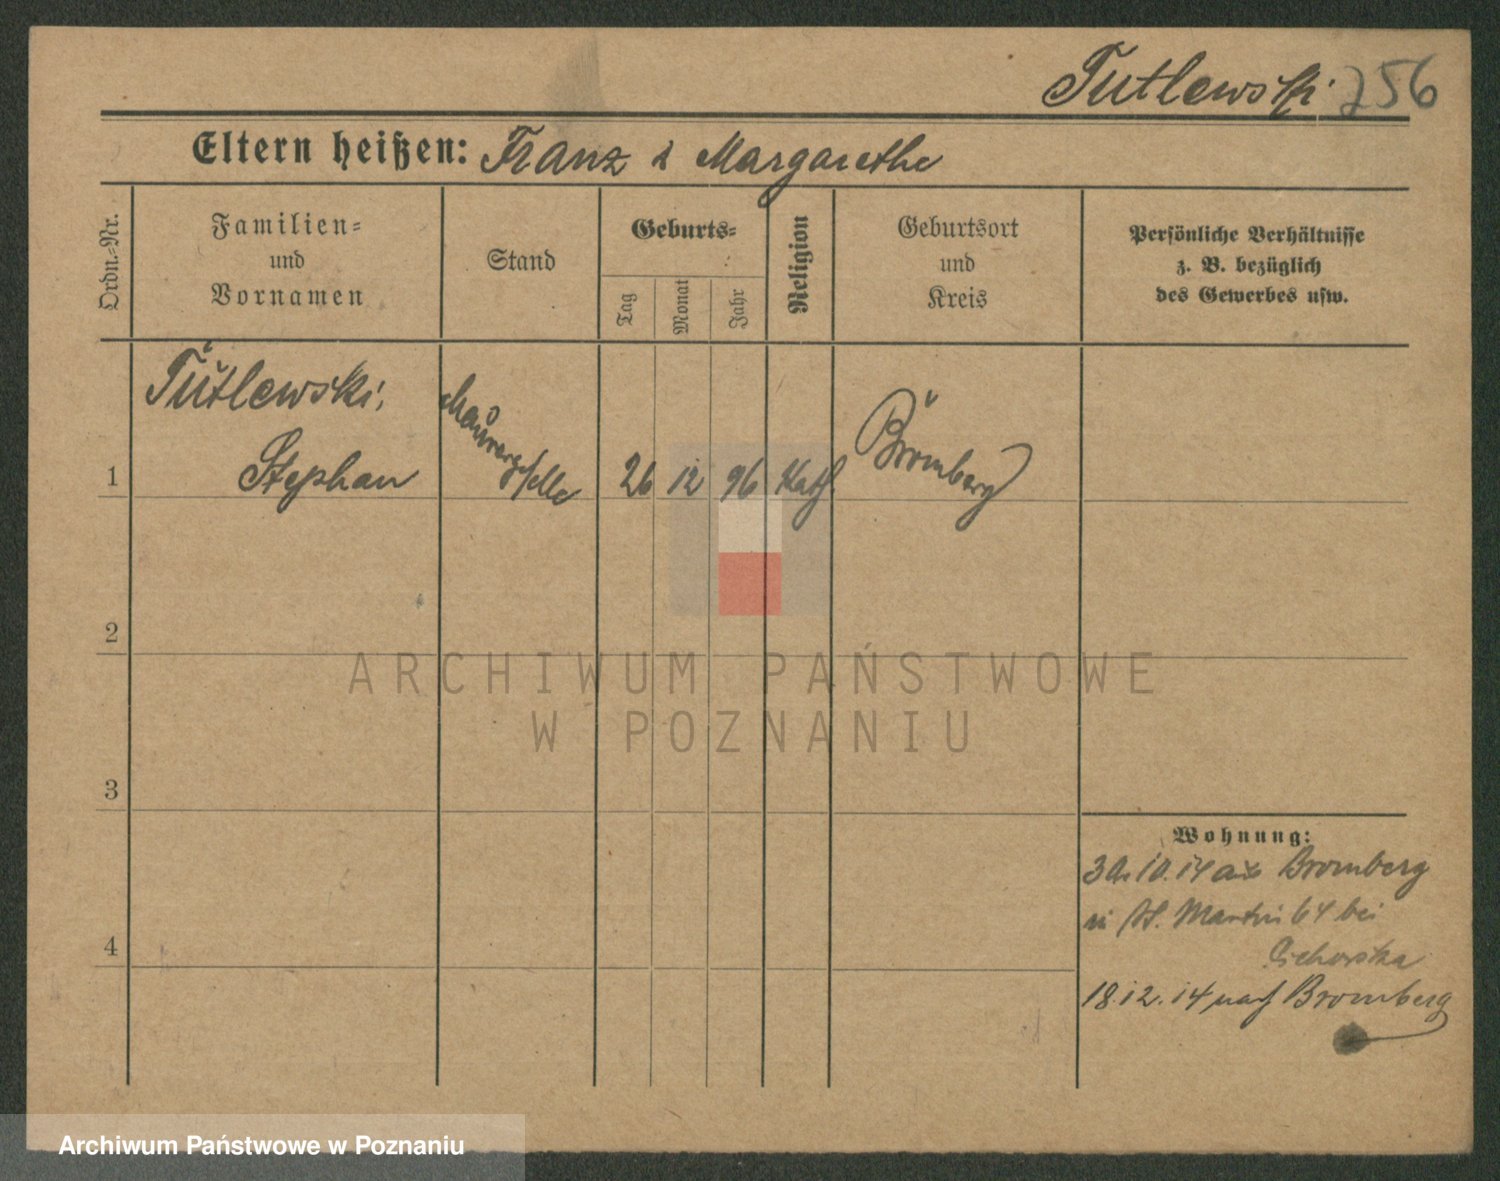 Tutlewski 256
Eltern heißen: Franz & Margarethe
Ordn.-Nr.
Familien-
und
Vornamen
Stand
Geburts-
Tag
Monat
Jahr
Religion
Geburtsort
und
Kreis
Persönliche Verhältnisse
z. B. bezüglich
des Gewerbes usw.
1
Tutlewski,
Stephan
Maurergeselle
26 12 96 Kath.
Bromberg
2
3
4
Wohnung:
30.10.14 aus Bromberg
in St. Martin 64 bei
Cichorska
18.12.14 nach Bromberg
ARCHIWUM PAŃSTWOWE
W POZNANIU
Archiwum Państwowe w Poznaniu